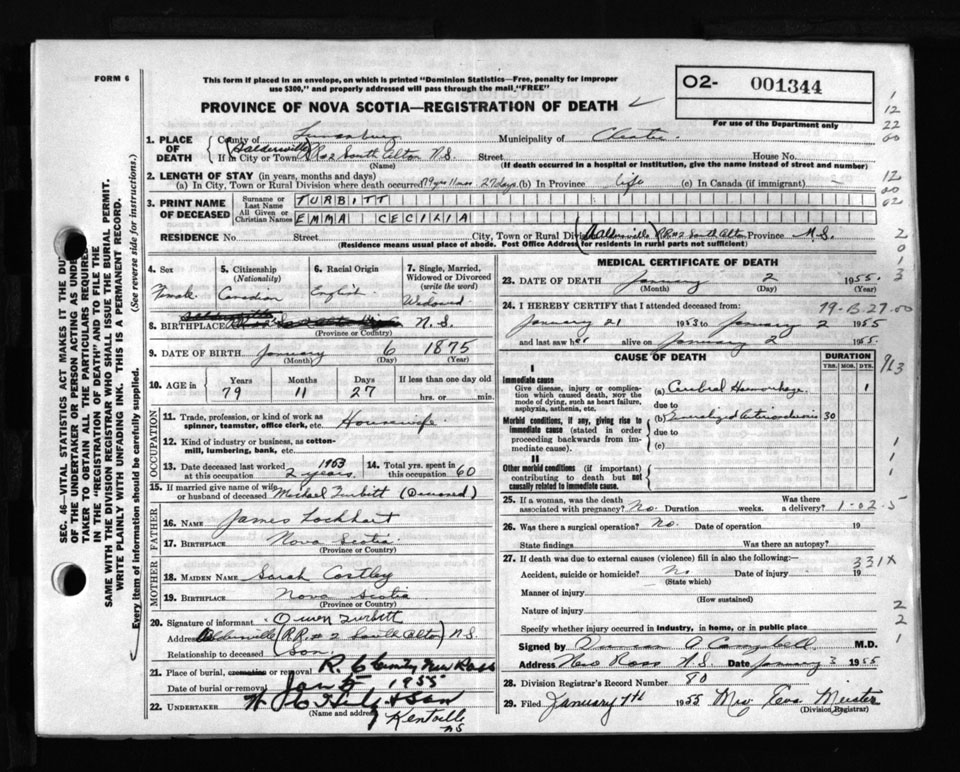 FORM 6
This form if placed in an envelope, on which is printed "Dominion Statistics—Free, penalty for improper
use $300," and properly addressed will pass through the mail "FREE"
PROVINCE OF NOVA SCOTIA—REGISTRATION OF DEATH
O2- 001344
For use of the Department only
SEC. 46—VITAL STATISTICS ACT MAKES IT THE DU
OF THE UNDERTAKER OR PERSON ACTING AS UNDER
TAKER TO OBTAIN ALL THE PARTICULARS REQUIRED
IN THE "REGISTRATION OF DEATH" AND TO FILE THE
SAME WITH THE DIVISION REGISTRAR WHO SHALL ISSUE THE BURIAL PERMIT.
WRITE PLAINLY WITH UNFADING INK. THIS IS A PERMANENT RECORD.
Every item of information should be carefully supplied. (See reverse side for instructions.)
1. PLACE OF DEATH
County of Lunenburg Municipality of Chester
If in City or Town RR#2 South Alton N.S. Street House No.
(Name) (If death occurred in a hospital or institution, give the name instead of street and number)
2. LENGTH OF STAY (in years, months and days)
(a) In City, Town or Rural Division where death occurred 79 yrs 11 mos 27 days (b) In Province life (c) In Canada (if immigrant) –
3. PRINT NAME OF DECEASED
Surname or Last Name TURBITT
All Given or Christian Names EMMA CECILIA
RESIDENCE No. Street City, Town or Rural Div R.R.#2 South Alton Province N.S.
(Residence means usual place of abode. Post Office Address for residents in rural parts not sufficient)
4. Sex Female
5. Citizenship (Nationality) Canadian
6. Racial Origin English
7. Single, Married, Widowed or Divorced (write the word) Widowed
8. BIRTHPLACE N.S.
(Province or Country)
9. DATE OF BIRTH January 6 1875
(Month) (Day) (Year)
10. AGE in Years 79 Months 11 Days 27 If less than one day old hrs. or min.
OCCUPATION
11. Trade, profession, or kind of work as spinner, teamster, office clerk, etc. Housewife
12. Kind of industry or business, as cotton-mill, lumbering, bank, etc.
13. Date deceased last worked at this occupation 1953 2 years
14. Total yrs. spent in this occupation 60
15. If married give name of wife or husband of deceased Michael Turbitt (Deceased)
FATHER
16. NAME James Lockhart
17. BIRTHPLACE Nova Scotia
(Province or Country)
MOTHER
18. MAIDEN NAME Sarah Costley
19. BIRTHPLACE Nova Scotia
(Province or Country)
20. Signature of informant Owen Turbitt
Address R.R.#2 South Alton N.S.
Relationship to deceased Son.
21. Place of burial, cremation or removal R.C. Cemetery New Ross
Date of burial or removal Jan 5 1955
22. UNDERTAKER & Son
(Name and address) Kentville NS
MEDICAL CERTIFICATE OF DEATH
23. DATE OF DEATH January 2 1955.
(Month) (Day) (Year)
24. I HEREBY CERTIFY that I attended deceased from:
January 21 1953 to January 2 1955
and last saw her alive on January 2 1955.
CAUSE OF DEATH
DURATION
YRS. MOS. DYS.
I
Immediate cause
Give disease, injury or complication which caused death, NOT the mode of dying, such as heart failure, asphyxia, asthenia, etc.
(a) Cerebral Hemorrhage 1
due to
Morbid conditions, if any, giving rise to immediate cause (stated in order proceeding backwards from immediate cause).
(b) Generalized Arteriosclerosis 30
due to
(c)
II
Other morbid conditions (if important) contributing to death but not causally related to immediate cause.
25. If a woman, was the death associated with pregnancy? No. Duration weeks. Was there a delivery? 1-02-5
26. Was there a surgical operation? No. Date of operation 19
State findings Was there an autopsy?
27. If death was due to external causes (violence) fill in also the following:
331X
Accident, suicide or homicide? No Date of injury 19
(State which)
Manner of injury
(How sustained)
Nature of injury
Specify whether injury occurred in industry, in home, or in public place
Signed by Duncan A Campbell M.D.
Address New Ross N.S. Date January 3 1955
28. Division Registrar's Record Number 80
29. Filed January 7th 1955 Mrs Eva Meister
(Division Registrar)